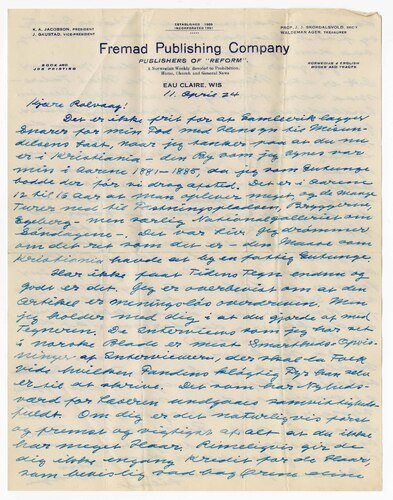 K. A. JACOBSON, PRESIDENT
J. GAUSTAD, VICE-PRESIDENT
ESTABLISHED 1886
INCORPORATED 1891
PROF. J. J. SKORDALSVOLD, SEC'Y
WALDEMAR AGER, TREASURER
Fremad Publishing Company
PUBLISHERS OF "REFORM"
A Norwegian Weekly devoted to Prohibition,
Home, Church and General News
BOOK AND
JOB PRINTING
NORWEGIAN & ENGLISH
BOOKS AND TRACTS
EAU CLAIRE, WIS
11 April 24
Kjære Rolvaag!
Det er ikke frit for at Gamleerik lægger
Snarer for min Fod med Hensyn til Misun-
delsens Last, naar jeg tænker paa at du nu
er i Kristiania - den By som jeg synes var
min i Aarene 1881-1885, da jeg som Guttunge
bodde der før vi drog afsted. Det er i Aarene
12 til 15 Aar at Man oplever meget, og de mange
Turer ned til Fæstningspladsen, Bryggerne,
Egeberg - men særlig Nationalgalleriet om
Søndagene -. Det var her jeg drømmer
om det ret som det er - den Masse som
Kristiania havde at by en fattig Guttunge.
Har ikke faat Tidens Tegn endnu og
godt er det. Jeg er overbevist om at din
Artikel er meningsløs overdreven. Men
jeg holder med dig i at du gjorde af med
Tegneren. De Interviews som jeg har set
i norske Blade er mest Snakkeds Opvis-
ninger af Intervieweren, der skal la Folk
vide hvilken Fandens kløgtig Fyr han selv
er til at skrive. Det som har Nyheds-
værd for Læseren undgaaes samvittigheds-
fuldt. Om dig er det naturligvis først
og fremst og vigtigst af alt at du ikke
har meget Haar. Rimeligvis gir de
dig ikke engang Kredit for de Haar,
som bevislig sad bag Ørene sine